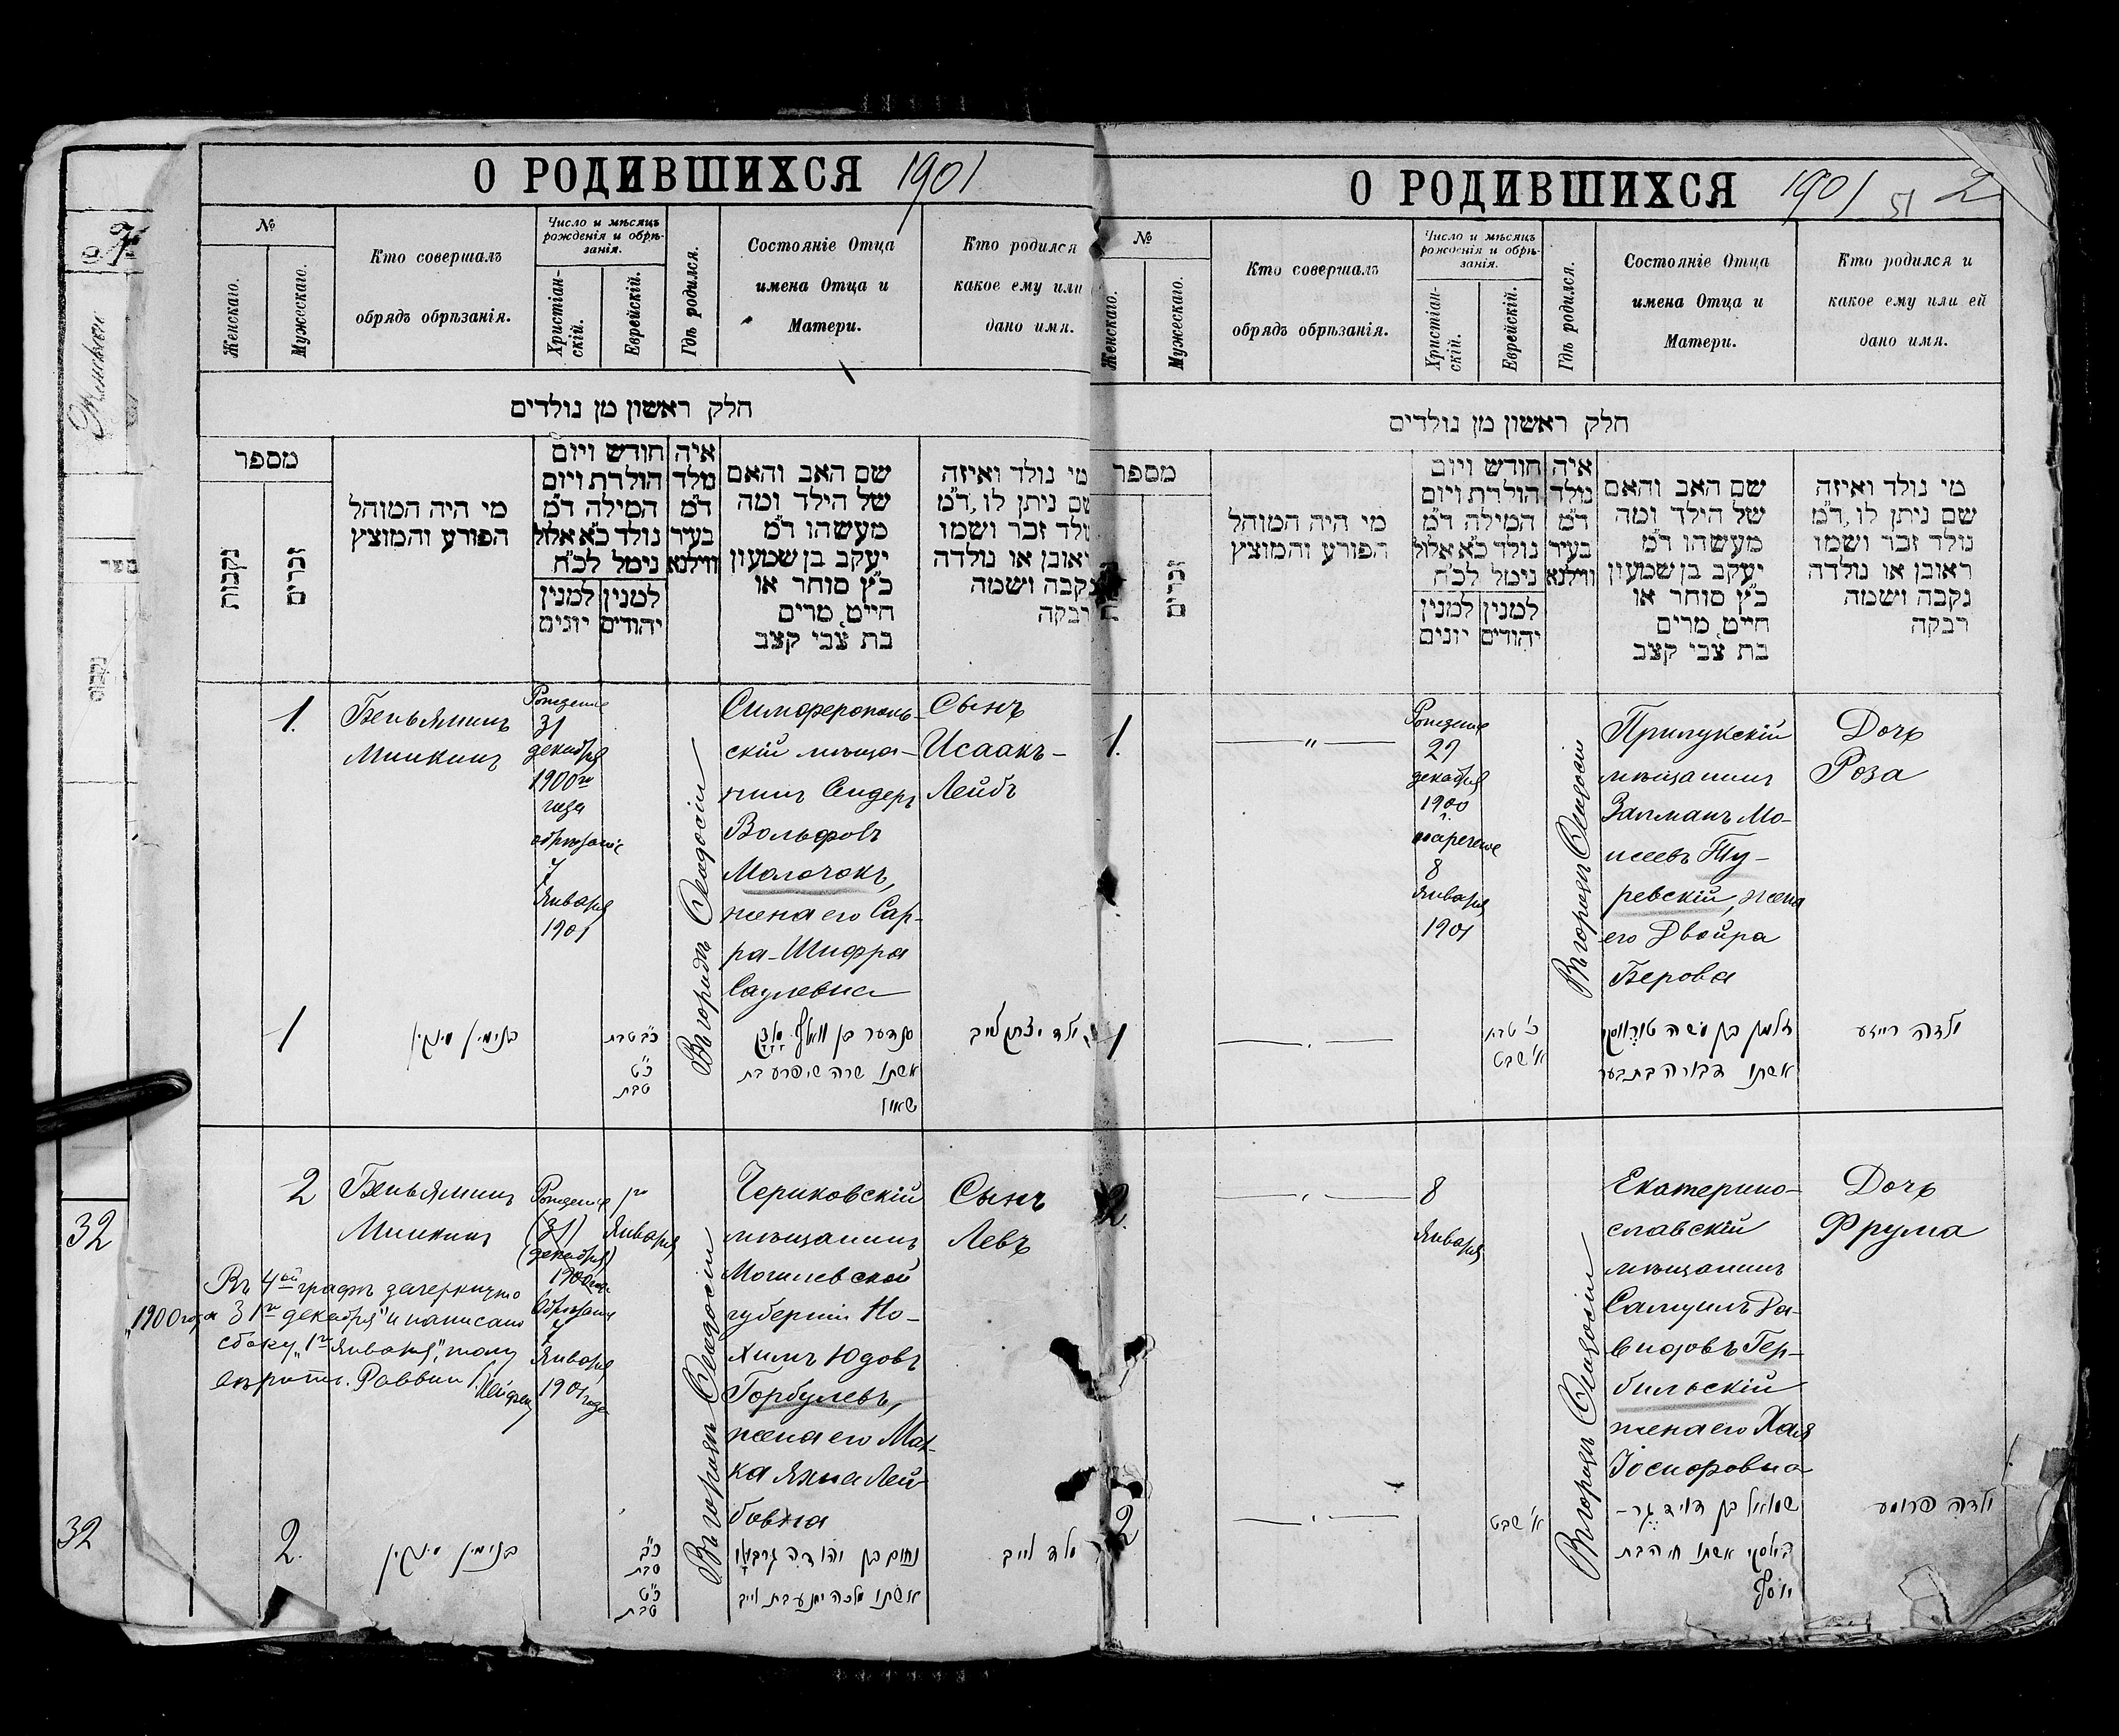 О РОДИВШИХСЯ 1901
№
Женскаго.
Мужескаго.
Кто совершалъ
обрядъ обрѣзанія.
Число и мѣсяцъ
рожденія и обрѣ-
занія.
Христіан-
скій.
Еврейскій.
Гдѣ родился.
Состояніе Отца
имена Отца и
Матери.
Кто родился
какое ему или
дано имя.
חלק ראשון מן נולדים
מספר
נקבות
זכרים
מי היה המוהל
הפורע והמוציץ
חודש ויום
הולדת ויום
המילה ד"מ
נולד כ"א אלול
נימל לכ"ח
למנין
יהודים
למנין
יונים
איה
נולד
ד"מ
בעיר
ווילנא
שם האב והאם
של הילד ומה
מעשהו ד"מ
יעקב בן שמעון
כ"ץ סוחר או
חייט מרים
בת צבי קצב
מי נולד ואיזה
שם ניתן לו, ד"מ
נולד זכר ושמו
ראובן או נולדה
נקבה ושמה
רבקה
1.
Беньяминъ
Минкинъ
Рожденіе
31
декабря
1900го
года
обрѣзаніе
7
Января
1901
Въ городѣ Ѳеодосіи
Симферополь-
скій мѣща-
нинъ Сендеръ
Вольфовъ
Молочокъ,
жена его Сар-
ра-Шифра
Саулевна
Сынъ
Исаакъ-
Лейбъ
1
בנימין מינקין
כ"ט
טבת
אשתו שרה שיפרע בת
שאול
ילד יצחק לייב
2
Беньяминъ
Минкинъ
Рожденіе
(31)
(декабря)
1900го
Обрѣзаніе
7
Января
1901 года
1го
Января
Въ городѣ Ѳеодосіи
Чериковскій
мѣщанинъ
Могилевской
губерніи Но-
химъ Юдовъ
Горбулевъ,
жена его Мал-
ка Яхна Лей-
бовна
Сынъ
Левъ
32
Въ 4ой графѣ зачеркнуто
"1900 года 31го декабря" и написано
сбоку "1го Января", тому
вѣрить. Раввинъ
32
2.
בנימין מינקין
כ"ט
טבת
נחום בן יהודה
אשתו מלכה יחנע בת לייב
ילד לייב
О РОДИВШИХСЯ 1901 51 2
№
Женскаго.
Мужескаго.
Кто совершалъ
обрядъ обрѣзанія.
Число и мѣсяцъ
рожденія и обрѣ-
занія.
Христіан-
скій.
Еврейскій.
Гдѣ родился.
Состояніе Отца
имена Отца и
Матери.
Кто родился и
какое ему или ей
дано имя.
חלק ראשון מן נולדים
מספר
זכרים
מי היה המוהל
הפורע והמוציץ
חודש ויום
הולדת ויום
המילה ד"מ
נולד כ"א אלול
נימל לכ"ח
למנין
יהודים
למנין
יונים
איה
נולד
ד"מ
בעיר
ווילנא
שם האב והאם
של הילד ומה
מעשהו ד"מ
יעקב בן שמעון
כ"ץ סוחר או
חייט מרים
בת צבי קצב
מי נולד ואיזה
שם ניתן לו, ד"מ
נולד זכר ושמו
ראובן או נולדה
נקבה ושמה
רבקה
1.
— " —
Рожденіе
27
декабря
1900
нареченіе
8
Января
1901
Въ городѣ Ѳеодосіи
Прилукскій
мѣщанинъ
Залманъ Мо-
исеевъ Ту-
ревскій, жена
его Двойра
Берова
Дочь
Роза
1
א' שבט
זלמן בן משה טורווסקי
אשתו דבורה בת בער
ילדה רייזע
2.
8
Января
Въ городѣ Ѳеодосіи
Екатерино-
славскій
мѣщанинъ
Самуилъ Да-
видовъ Гер-
бильскій
жена его Хая
Іосифовна
Дочь
Фрума
2
א' שבט
שמואל בן דוד גר-
בילסקי אשתו חיה בת
יוסף
ילדה פרומע